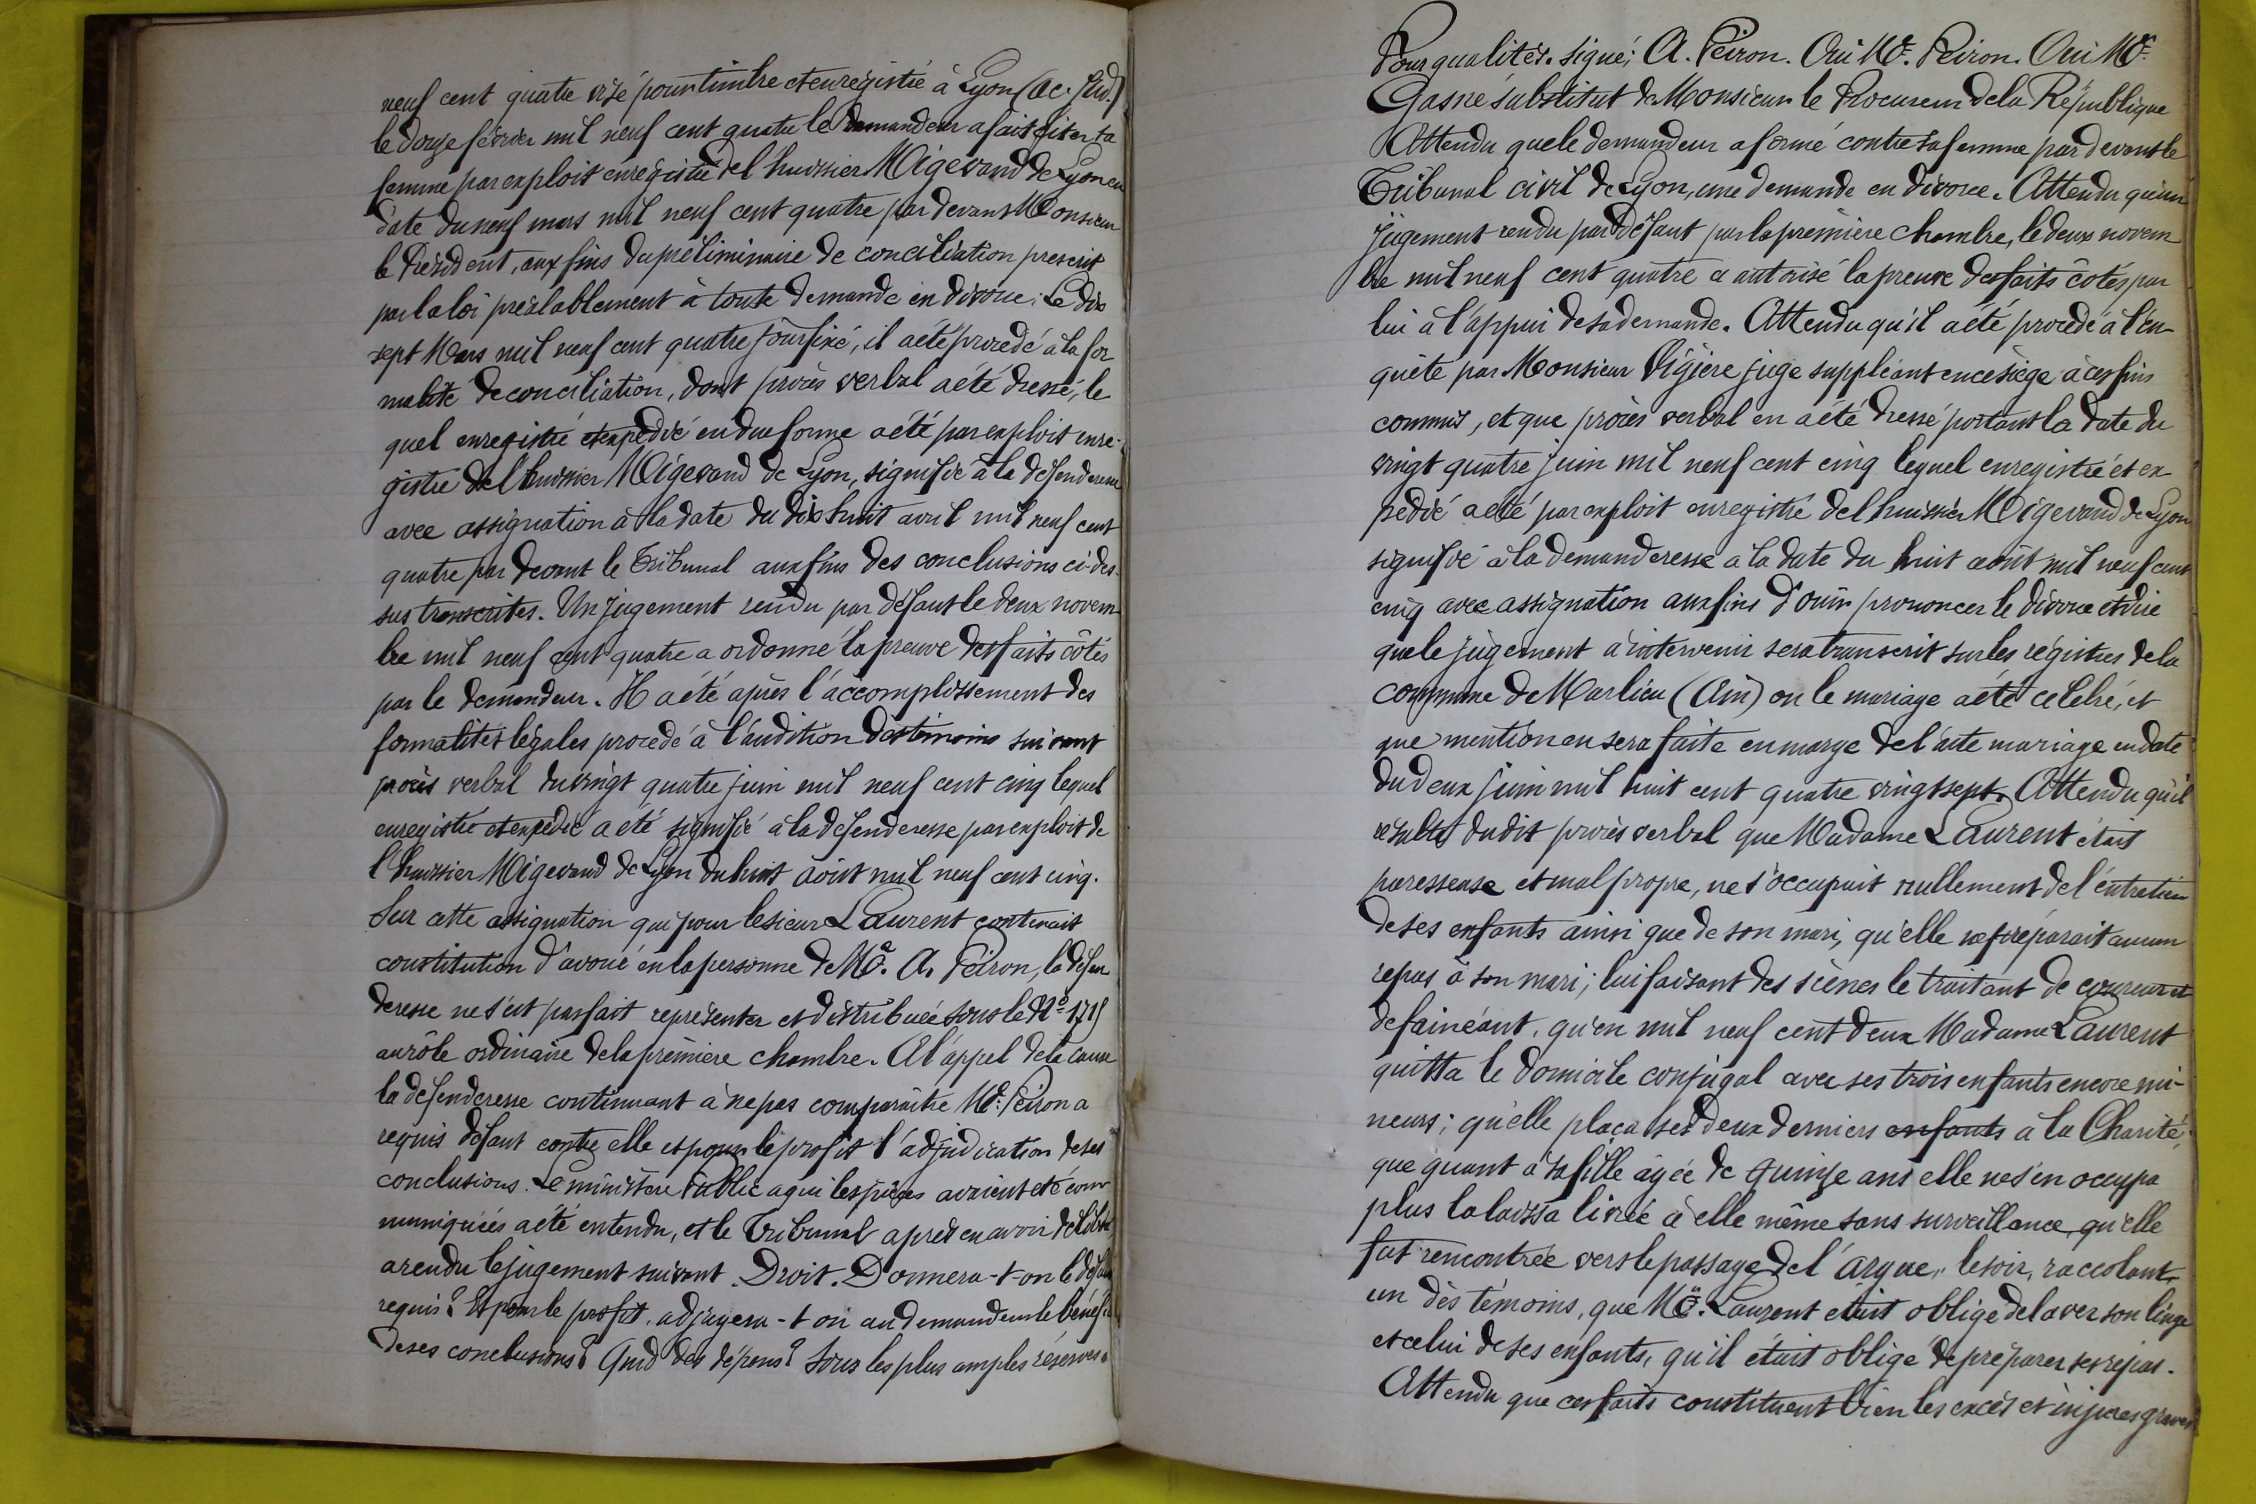 neuf cent quatre visé pour timbre et enregistré à Lyon (ac. jud.)
le douze février mil neuf cent quatre le demandeur a fait citer sa
femme par exploit enregistré de l'huissier Migevand de Lyon en
date du neuf mars mil neuf cent quatre par devant Monsieur
le Président, aux fins du préliminaire de conciliation prescrit
par la loi préalablement à toute demande en divorce; Le dix
sept Mars mil neuf cent quatre jour fixé, il a été procédé à la for
malité de conciliation, dont procès verbal a été dressé, le
quel enregistré et expédié en due forme a été par exploit enre-
gistré de l'huissier Migevand de Lyon, signifié à la défenderesse
avec assignation à la date du dix huit avril mil neuf cent
quatre par devant le Tribunal aux fins des conclusions ci-des-
sus transcrites. Un jugement rendu par défaut le deux novem
bre mil neuf cent quatre a ordonné la preuve des faits côtés
par le demandeur. Il a été après l'accomplissement des
formalités légales procédé à l'audition des témoins suivant
procès verbal du vingt quatre juin mil neuf cent cinq lequel
enregistré et expédié a été signifié à la défenderesse par exploit de
l'huissier Migevand de Lyon du huit août mil neuf cent cinq.
Sur cette assignation qui pour le sieur Laurent contenait
constitution d'avoué en la personne de Me. A. Peiron, la défen
deresse ne s'est pas fait représenter et distribuée sous le No 1715
au rôle ordinaire de la première chambre. A l'appel de la cause
la défenderesse continuant à ne pas comparaître Me. Peiron a
requis défaut contre elle et pour le profit l'adjudication de ses
conclusions. Le ministère Public a qui les pièces avaient été com
muniquées a été entendu, et le Tribunal après en avoir délibéré
a rendu le jugement suivant. Droit. Donnera-t-on le défaut
requis? Et pour le profit, adjugera-t on au demandeur le bénéfice
de ses conclusions? Quid des dépens? Sous les plus amples réserves.
Pour qualités. signé: A. Peiron. Oui Me. Peiron. Oui Mr.
Gasné substitut de Monsieur le Procureur de la République
Attendu que le demandeur a formé contre sa femme par devant le
Tribunal civil de Lyon, une demande en divorce. Attendu qu'un
jugement rendu par défaut par la première chambre, le deux novem
bre mil neuf cent quatre a autorisé la preuve des faits côtés par
lui à l'appui de sa demande. Attendu qu'il a été procédé à l'en-
quête par Monsieur Vigière juge suppléant en ce siège à ces fins
commis, et que procès verbal en a été dressé portant la date du
vingt quatre juin mil neuf cent cinq lequel enregistré et ex
pédié a été par exploit enregistré de l'huissier Migevand de Lyon
signifié à la demanderesse à la date du huit août mil neuf cent
cinq avec assignation aux fins d'ouïr prononcer le divorce et dire
que le jugement à intervenir sera transcrit sur les registres de la
commune de Marlieu (Ain) ou le mariage a été célébré, et
que mention en sera faite en marge de l'acte mariage en date
du deux juin mil huit cent quatre vingt sept. Attendu qu'il
résulte dudit procès verbal que Madame Laurent était
paresseuse et malpropre, ne s'occupait nullement de l'entretien
de ses enfants ainsi que de son mari, qu'elle ne préparait aucun
repas à son mari; lui faisant des scènes le traitant de coureur et
de fainéant, qu'en mil neuf cent deux Madame Laurent
quitta le domicile conjugal avec ses trois enfants encore mi-
neurs; qu'elle plaça ses deux derniers enfants à la Charité,
que quant à sa fille âgée de quinze ans elle ne s'en occupa
plus la laissa livrée à elle même sans surveillance, qu'elle
fut rencontrée vers le passage de l'argue, le soir, raccolant
un des témoins, que Mr. Laurent était obligé de laver son linge
et celui de ses enfants, qu'il était obligé de préparer ses repas.
Attendu que ces faits constituent bien les excès et injures graves